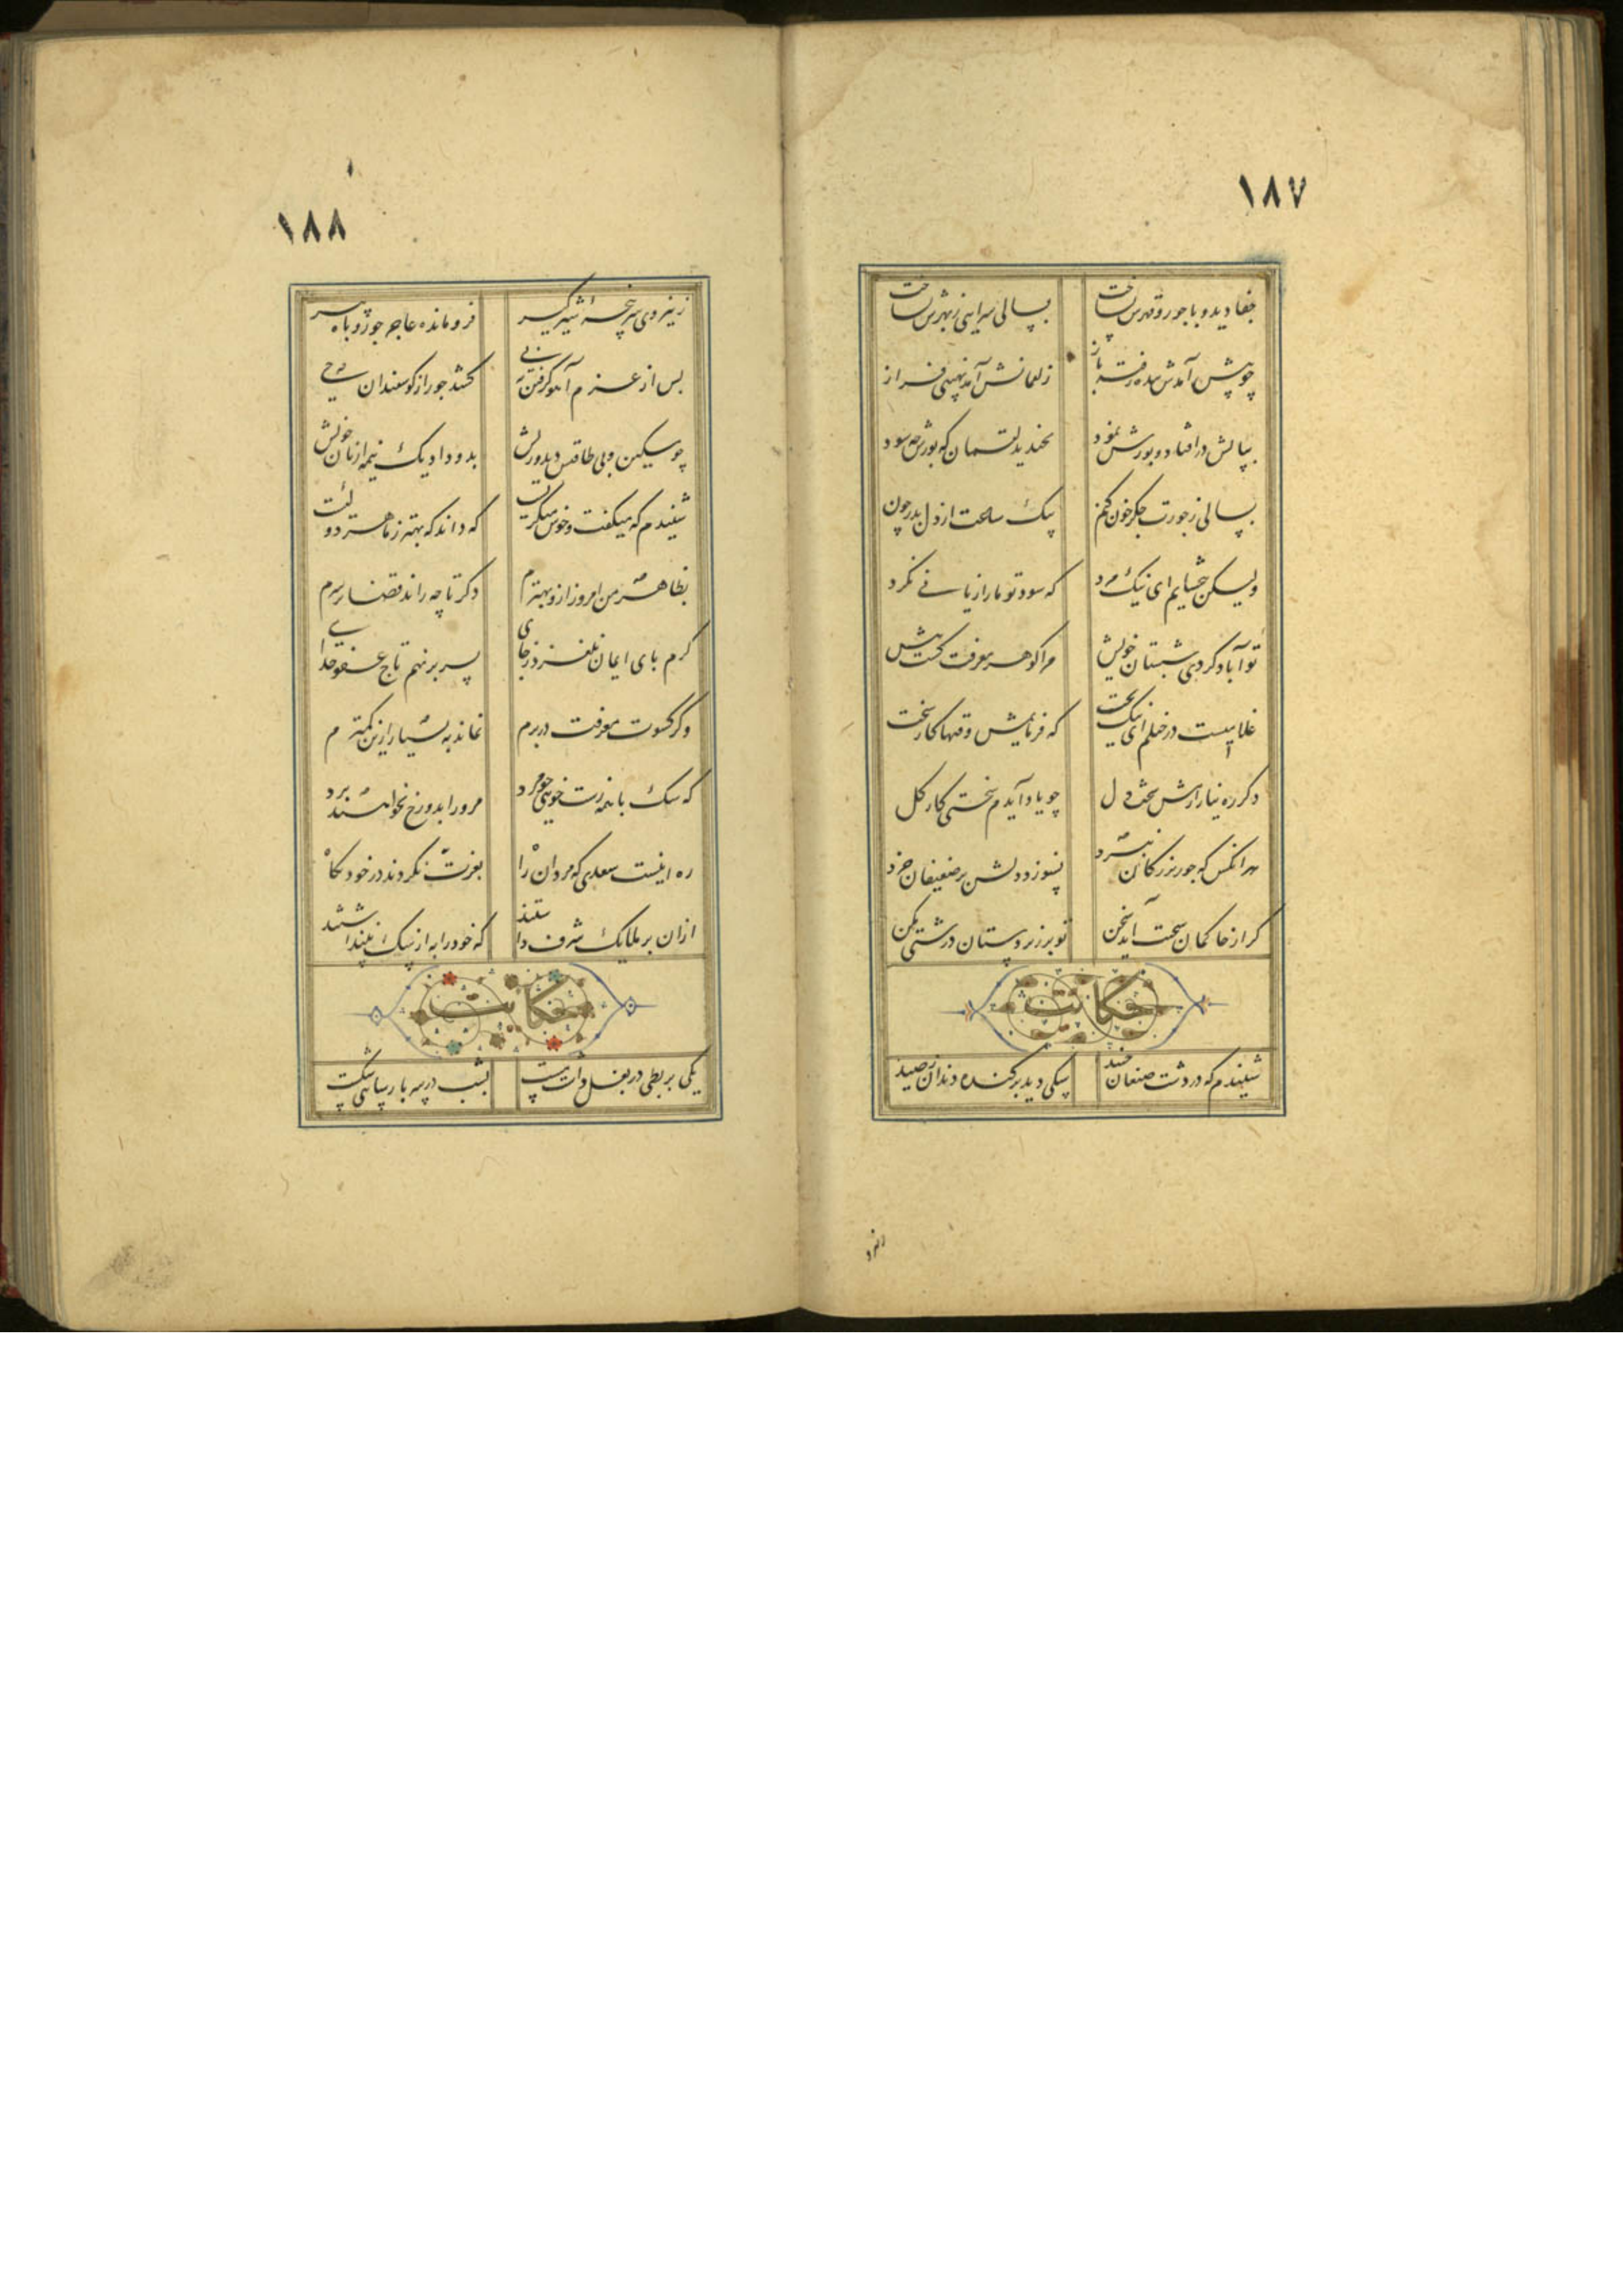 ۱۸۷
جفا دید و با جور و قهرش بساخت بسالی سرایی ز بهرش بساخت
چو پیش آمدش بنده رفته باز ز لقمانش آمد نهیبی فراز
بپایش در افتاد و پوزش نمود بخندید لقمان که پوزش چه سود
بسالی ز جورت جگر خون کنم بیک ساعت از دل بدر چون کنم
ولیکن ببخشایم ای نیک مرد که سود تو ما را زیانی نکرد
تو آباد کردی شبستان خویش مرا کوهر معرفت کشت بیش
غلامیست در خیلم ای نیکبخت که فرمایمش وقتها کار سخت
دکر ره نیازارمش سخت دل چو یاد آیدم سختی کار کل
هر انکس که جور بزرکان نبرد نسوزد دلش بر ضعیفان خرد
کر از حاکمان سخت آید سخن تو بر زیردستان درشتی مکن
حکایت
شنیدم که در دشت صنعان جنید سکی دید برکنده دندان ز صید
۱۸۸
ز نیروی سر پنجهٔ شیر کیر فرو مانده عاجز چو روباه پیر
پس از عزم آهو کرفتن به پی کشد جور از کوسفندان حی
چو مسکین و بی طاقتش دید و ریش بدو داد یک نیمه از نان خویش
شنیدم که میکفت و خوش میکریست که داند که بهتر ز ما هر دو کیست
بظاهر من امروز ازو بهترم دکر تا چه راند قضا بر سرم
کرم پای ایمان نلغزد ز جای بسر بر نهم تاج عفو خدای
وکر کسوت معرفت در برم نماند به بسیار ازین کمترم
که سک با همه زشت خویی چو مرد مر او را بدوزخ نخواهند برد
ره اینست سعدی که مردان راه بعزت نکردند در خود نکاه
ازان بر ملایک شرف داشتند که خود را به از سک نپنداشتند
حکایت
یکی بربطی در بغل داشت مست بشب در سر پارسایی شکست